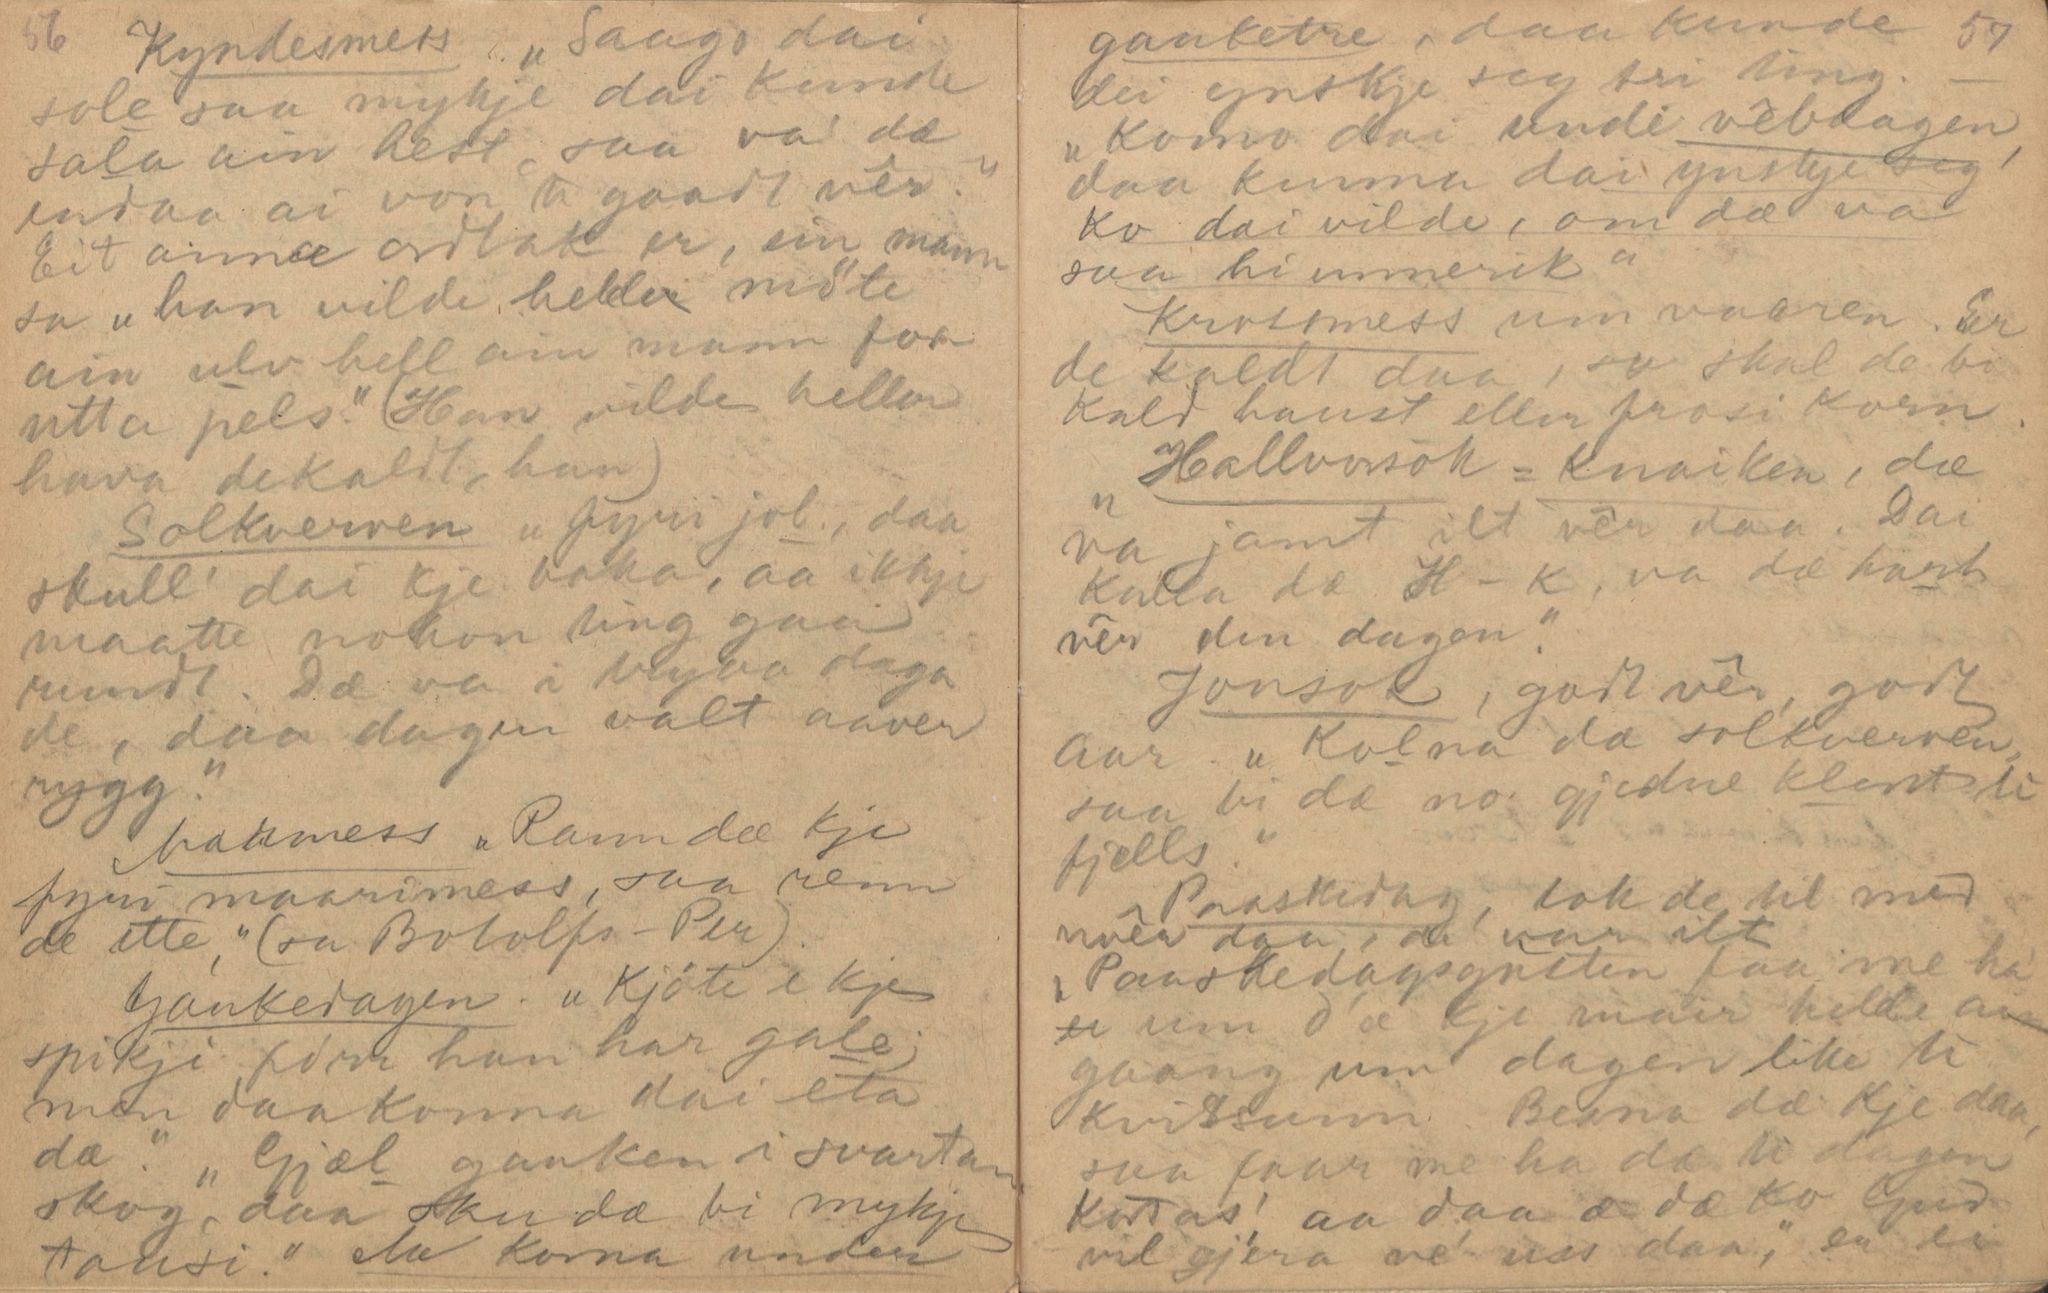 56
Kyndesmess. "Saago dai
sole saa mykje dai kunde
sala ain hest, saa va' dæ
endaa ai von ti goadt vêr."
Eit annæ ordtak er, ein mann
sa "han vilde helder möte
ain ulv hell ain mann foe
utta pels." (Han vilde heller
hava de kaldt, han)
Solkverven "fyri jol., daa
skull' dai kje baka, aa ikkje
maatte nokon ting gaa
rundt. Dæ va i daga
de, daa dagen valt aaver
rygg."
Makmess "Rann dæ kje
fyri maarimess, saa renn
de ette," (sa Botolfs-Per).
Gaukedagen. "Kjöte e kje
spikji förr han har gale;
men daa konna dai eta
dæ." "Gjæl gauken i svartan
skog, daa sku dæ bi mykje
tausi." Aa koma under
57
gauketre, daa kunde
dei ynskje seg tri ting.
"Komo dai undi vêbdagen,
daa kunna dai ynskje seg
ko dai vilde, om dæ va
saa himmerik"
Krossmess um vaaren. Er
de kaldt daa, so skal de bi
kald haust eller frosi korn.
Hallvorsok = Knaiken, dæ
"va jamt ilt vêr daa. Dai
kalla dæ H-K, va dæ hart
vêr den dagen."
Jonsok, godt vêr, godt
aar. "Kolna dæ solkverven,
saa bi dæ no gjedne klent ti
fjells."
Paaskedag, tok de til med
vêr daa, de var ilt
"Paaskedagsgusten faa me ha
um d'æ kje mair helde ain
gaang um dagen like ti
kvitsunn. Besna dæ kje daa,
saa faar me ha dæ ti dagen
kottas', aa daa æ dæ ko Gud
vil gjera ve' uss daa," er ei